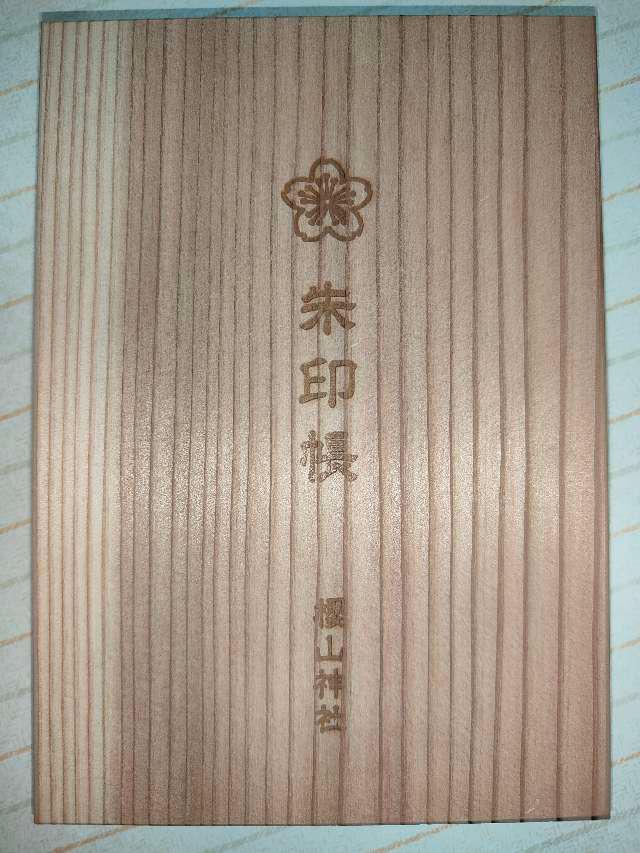 朱印帳
櫻山神社